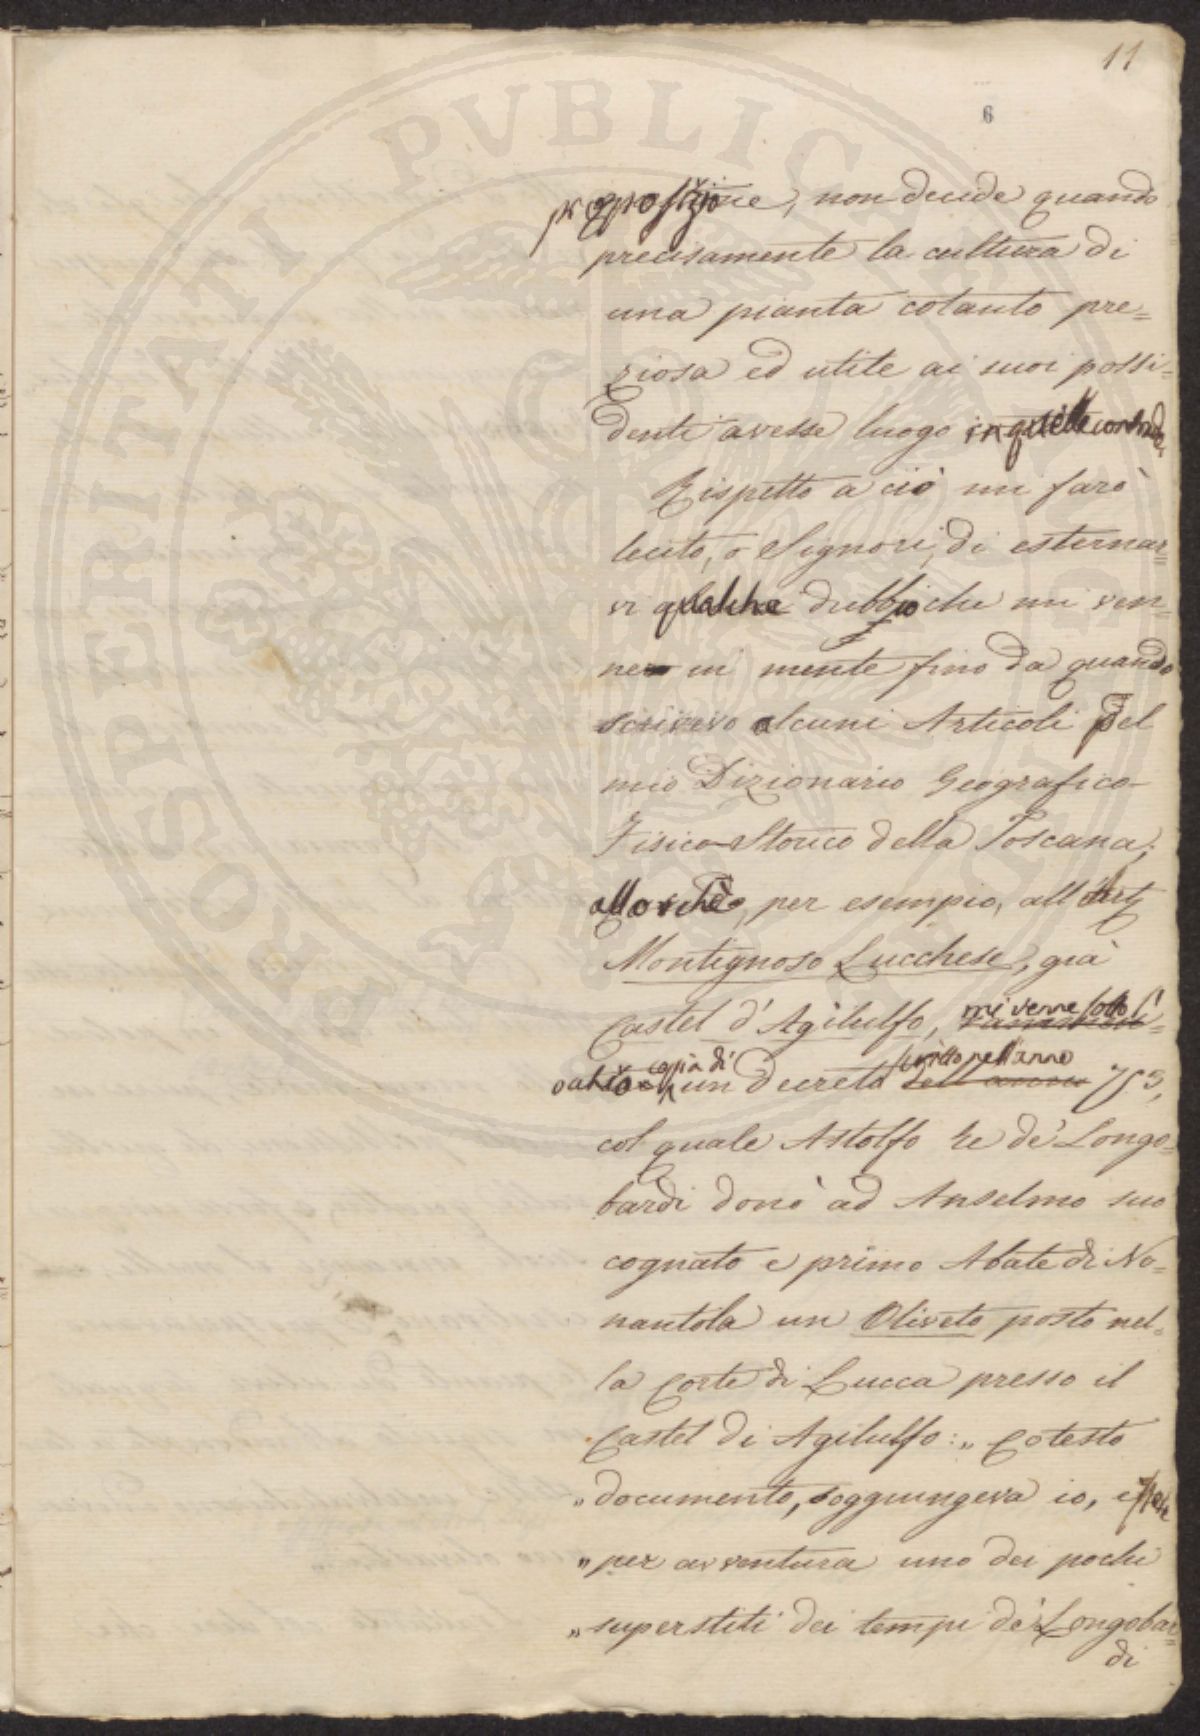 11
6
PROSPERITATI PVBLICAE
proposizione, non decide quando
precisamente la cultura di
una pianta cotanto pre=
ziosa ed utile ai suoi possi=
denti avesse luogo in quelle contrade,
Rispetto a ciò mi farò
lecito, o Signori, di esternar=
vi qualche dubbio che mi ven=
ne in mente fino da quando
scrivevo alcuni Articoli del
mio Dizionario Geografico-
Fisico-Storico della Toscana;
allorchè, per esempio, all'Art
Montignoso Lucchese, già
Castel d'Agilulfo, mi venne sott'
occhio copia di un decreto scritto nell'anno 753,
col quale Astolfo Re de' Longo=
bardi donò ad Anselmo suo
cognato e primo Abate di No=
nantola un Oliveto posto nel=
la Corte di Lucca presso il
Castel di Agilulfo: „ Cotesto
„ documento, soggiungeva io,
„ per avventura uno dei pochi
„ superstiti dei tempi de' Longobar=
di